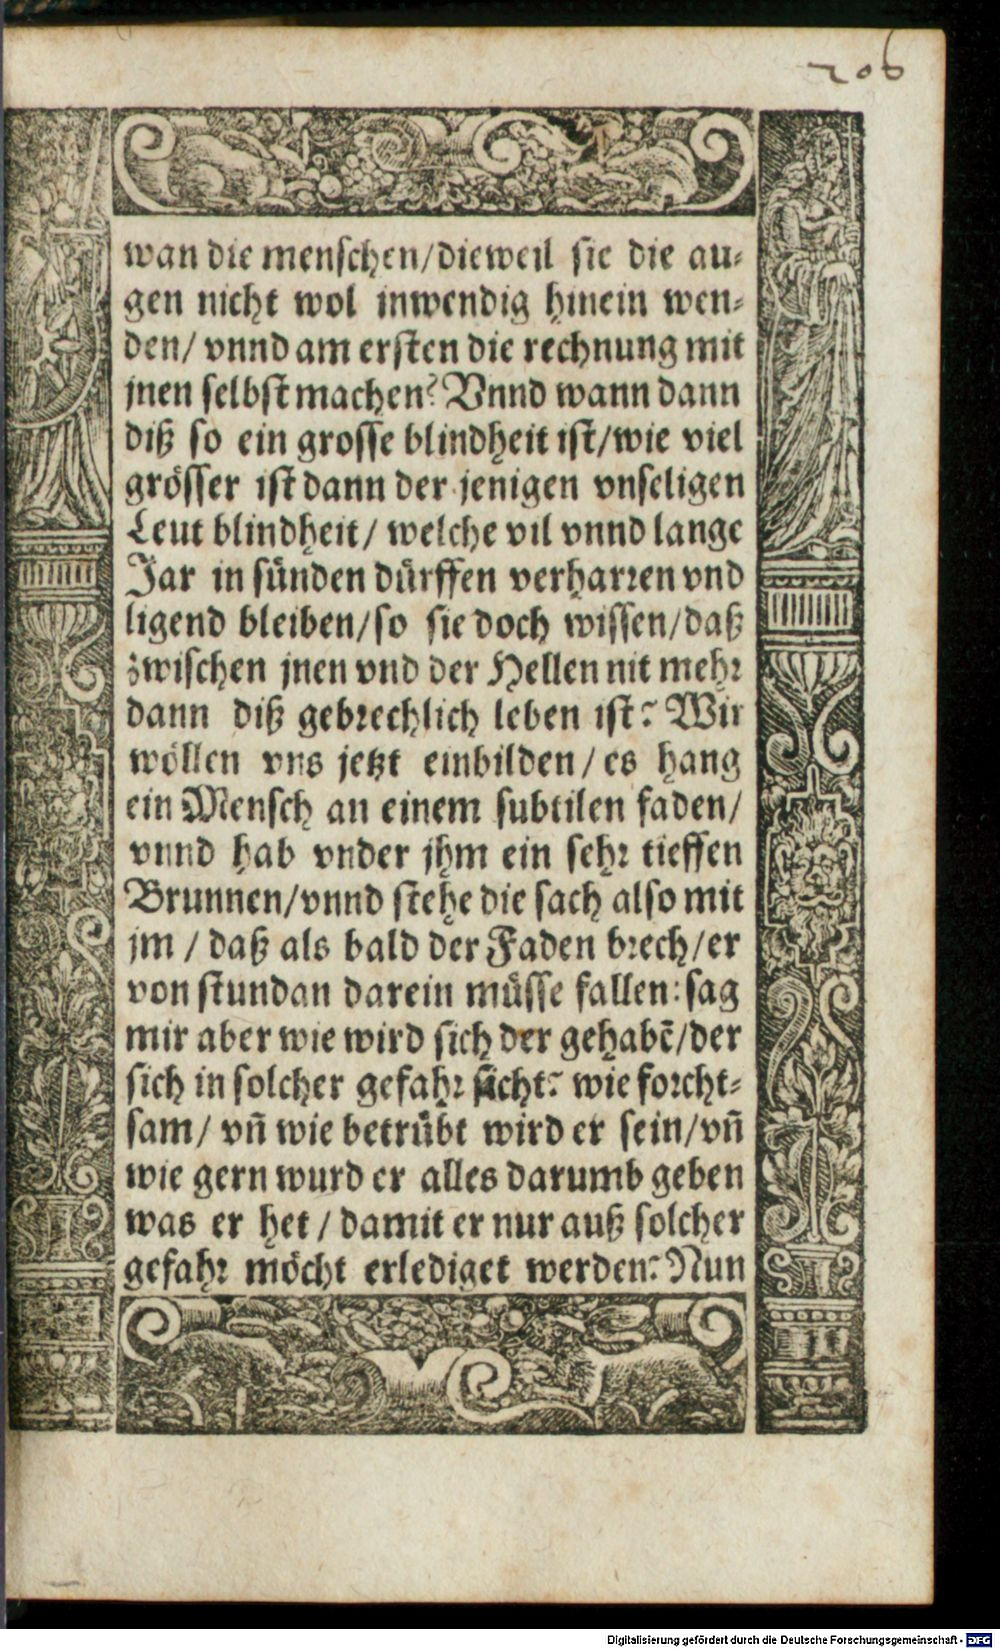 206
wan die menschen/dieweil sie die au⸗
gen nicht wol inwendig hinein wen⸗
den/ vnnd am ersten die rechnung mit
jnen selbst machen? Vnnd wann dann
diß so ein grosse blindheit ist/wie viel
grösser ist dann der jenigen vnseligen
Leut blindheit/ welche vil vnnd lange
Jar in sünden dürffen verharren vnd
ligend bleiben/so sie doch wissen/daß
zwischen jnen vnd der Hellen nit mehr
dann diß gebrechlich leben ist? Wir
wöllen vns jetzt einbilden/es hang
ein Mensch an einem subtilen faden/
vnnd hab vnder jhm ein sehr tieffen
Brunnen/vnnd stehe die sach also mit
jm / daß als bald der Faden brech/er
von stundan darein müsse fallen: sag
mir aber wie wird sich der gehabē/der
sich in solcher gefahr sicht? wie forcht⸗
sam/ vn̄ wie betrübt wird er sein/vn̄
wie gern wurd er alles darumb geben
was er het / damit er nur auß solcher
gefahr möcht erlediget werden? Nun
Digitalisierung gefördert durch die Deutsche Forschungsgemeinschaft - DFG